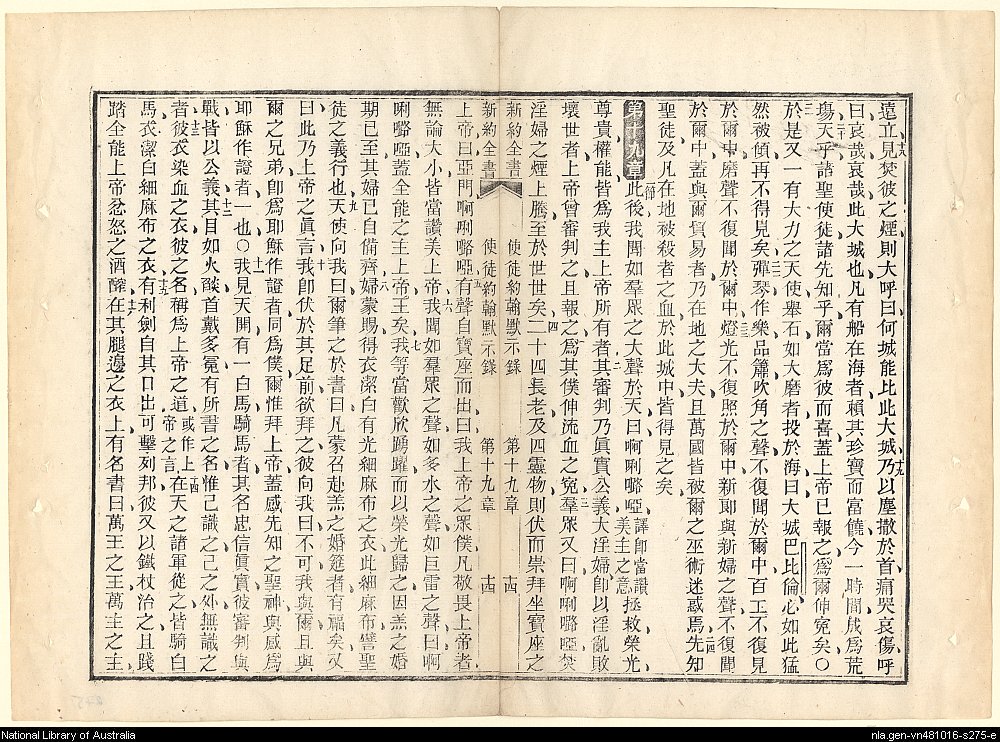 遠立見焚彼之煙則大呼曰何城能比此大城乃以塵撒於首痛哭哀傷呼
曰哀哉哀哉此大城也凡有船在海者賴其珍寶而富饒今一時間成爲荒
塲天乎諸聖使徒諸先知乎爾當爲彼而喜蓋上帝已報之爲爾伸寃矣〇
於是又一有大力之天使舉石如大磨者投於海曰大城巴比倫心如此猛
然被傾再不得見矣彈琴作樂品簫吹角之聲不復聞於爾中百工不復見
於爾中磨聲不復聞於爾中燈光不復照於爾中新郎與新婦之聲不復聞
於爾中蓋與爾貿易者乃在地之大夫且萬國皆被爾之巫術迷惑焉先知
聖徒及凡在地被殺者之血於此城中皆得見之矣
第十九章 此後我聞如羣眾之大聲於天曰啊唎嚕啞譯即當讚美主之意拯救榮光
尊貴權能皆爲我主上帝所有者其審判乃眞實公義大淫婦卽以淫亂敗
壞世者上帝曾審判之且報之爲其僕伸流血之寃羣眾又曰啊唎嚕啞焚
淫婦之煙上騰至於世世矣二十四長老及四靈物則伏而崇拜坐寶座之
新約全書 使徒約翰默示錄 第十九章 十四
新約全書 使徒約翰默示錄 第十九章 十四
上帝曰亞門啊唎嚕啞有聲自寶座而出曰我上帝之眾僕凡敬畏上帝者
無論大小皆當讚美上帝我聞如羣眾之聲如多水之聲如巨雷之聲曰啊
唎嚕啞蓋全能之主上帝王矣我等當歡欣踴躍而以榮光歸之因羔之婚
期已至其婦已自備齊婦蒙賜得衣潔白有光細麻布之衣此細麻布譬聖
徒之義行也天使向我曰爾筆之於書曰凡蒙召赴羔之婚筵者有福矣又
曰此乃上帝之眞言我卽伏於其足前欲拜之彼向我曰不可我與爾且與
爾之兄弟卽爲耶穌作證者同爲僕爾惟拜上帝蓋感先知之聖神與感爲
耶穌作證者一也〇我見天開有一白馬騎馬者其名忠信眞實彼審判與
戰皆以公義其目如火燄首戴多冕有所書之名惟己識之己之外無識之
者彼衣染血之衣彼之名稱爲上帝之道或作上帝之言在天之諸軍從之皆騎白
馬衣潔白細麻布之衣有利劍自其口出可擊列邦彼又以鐵杖治之且踐
踏全能上帝忿怒之酒醡在其腿邊之衣上有名書曰萬王之王萬主之主
National Library of Australia
nla.gen-vn481016-s275-e